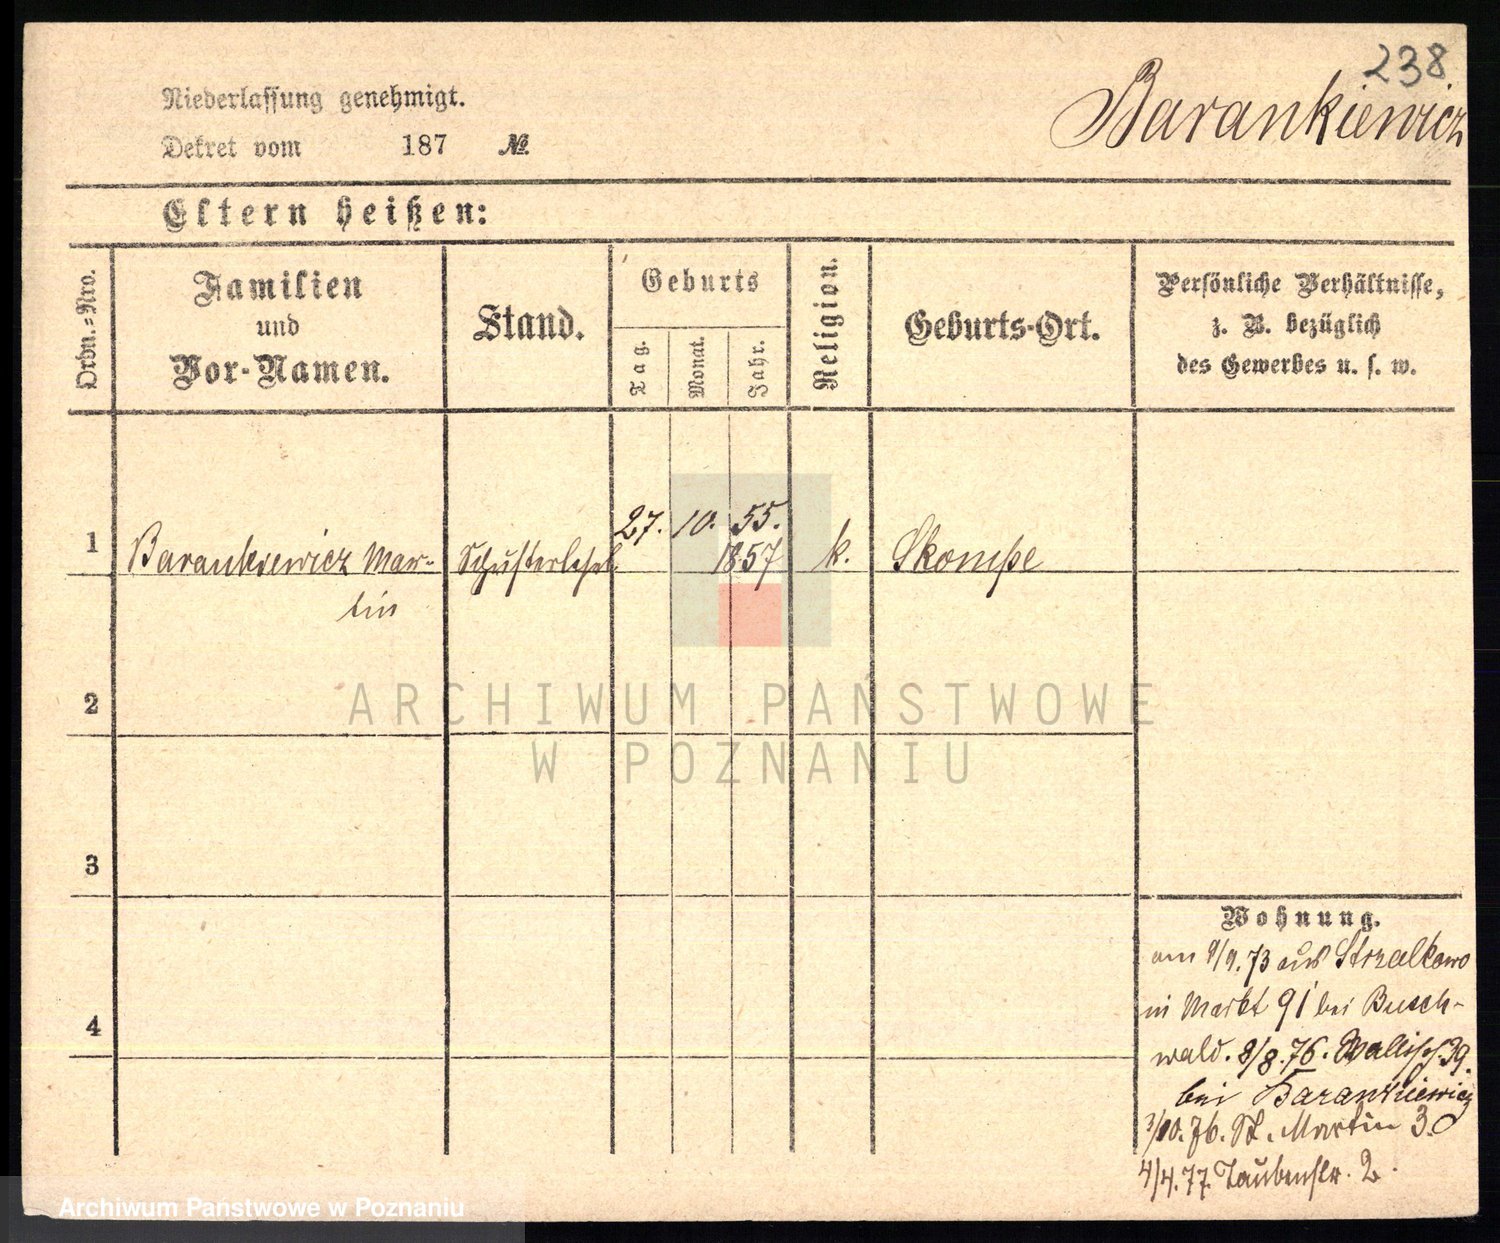 238
Barankiewicz
Niederlassung genehmigt.
Dekret vom 187 №.
Eltern heißen:
Ordn.-Nro.
Familien
und
Vor-Namen.
Stand.
Geburts
Tag.
Monat.
Jahr.
Religion.
Geburts-Ort.
Persönliche Verhältnisse,
z. B. bezüglich
des Gewerbes u. s. w.
27. 10. 55.
1 Barankiewicz Mar- Schusterlehrl. 1857 k. Skompe
tin
2
3
4
Wohnung.
am 9/9.73 aus Strzalkowo
in Markt 91 bei Busch-
wald. 8/8.76. Wallisch 39.
bei Barankiewicz
3/10.76. St. Martin 3.
4/4.77. Taubenstr. 2.
ARCHIWUM PAŃSTWOWE
W POZNANIU
Archiwum Państwowe w Poznaniu